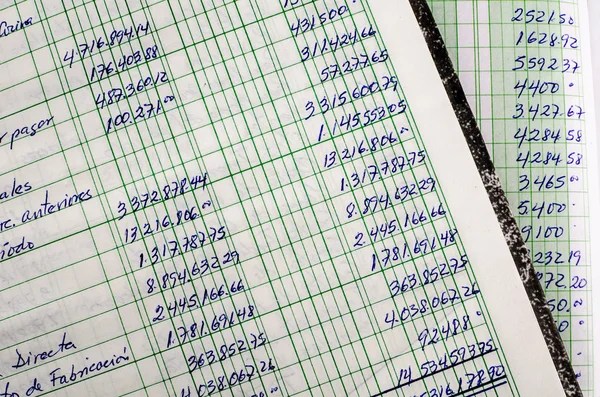 4.716.894.14
176.403.88
487.360.12
100.271.00
pagar
ales
anteriores
íodo
Directa
de Fabricación
3.372.878.44
13.216.806.00
1.317.787.75
8.894.632.29
2.445.166.66
1.781.691.48
363.852.75
4.038.067.26
431.500
311.424.66
57.277.65
3.315.600.79
1.145.553.05
13.216.806.00
1.317.787.75
8.894.632.29
2.445.166.66
1.781.691.48
363.852.75
4.038.067.26
92.488.0
14.534.593.75
2521.50
1628.92
5592.37
4400.0
3427.67
4284.58
4284.58
3465.00
5.400.0
9100
232.19
972.20
50.00